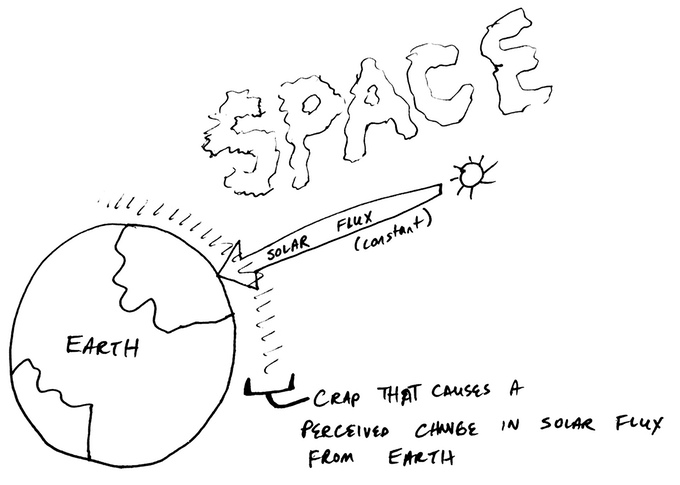 SPACE
SOLAR FLUX
(constant)
EARTH
CRAP THAT CAUSES A
PERCEIVED CHANGE IN SOLAR FLUX
FROM EARTH